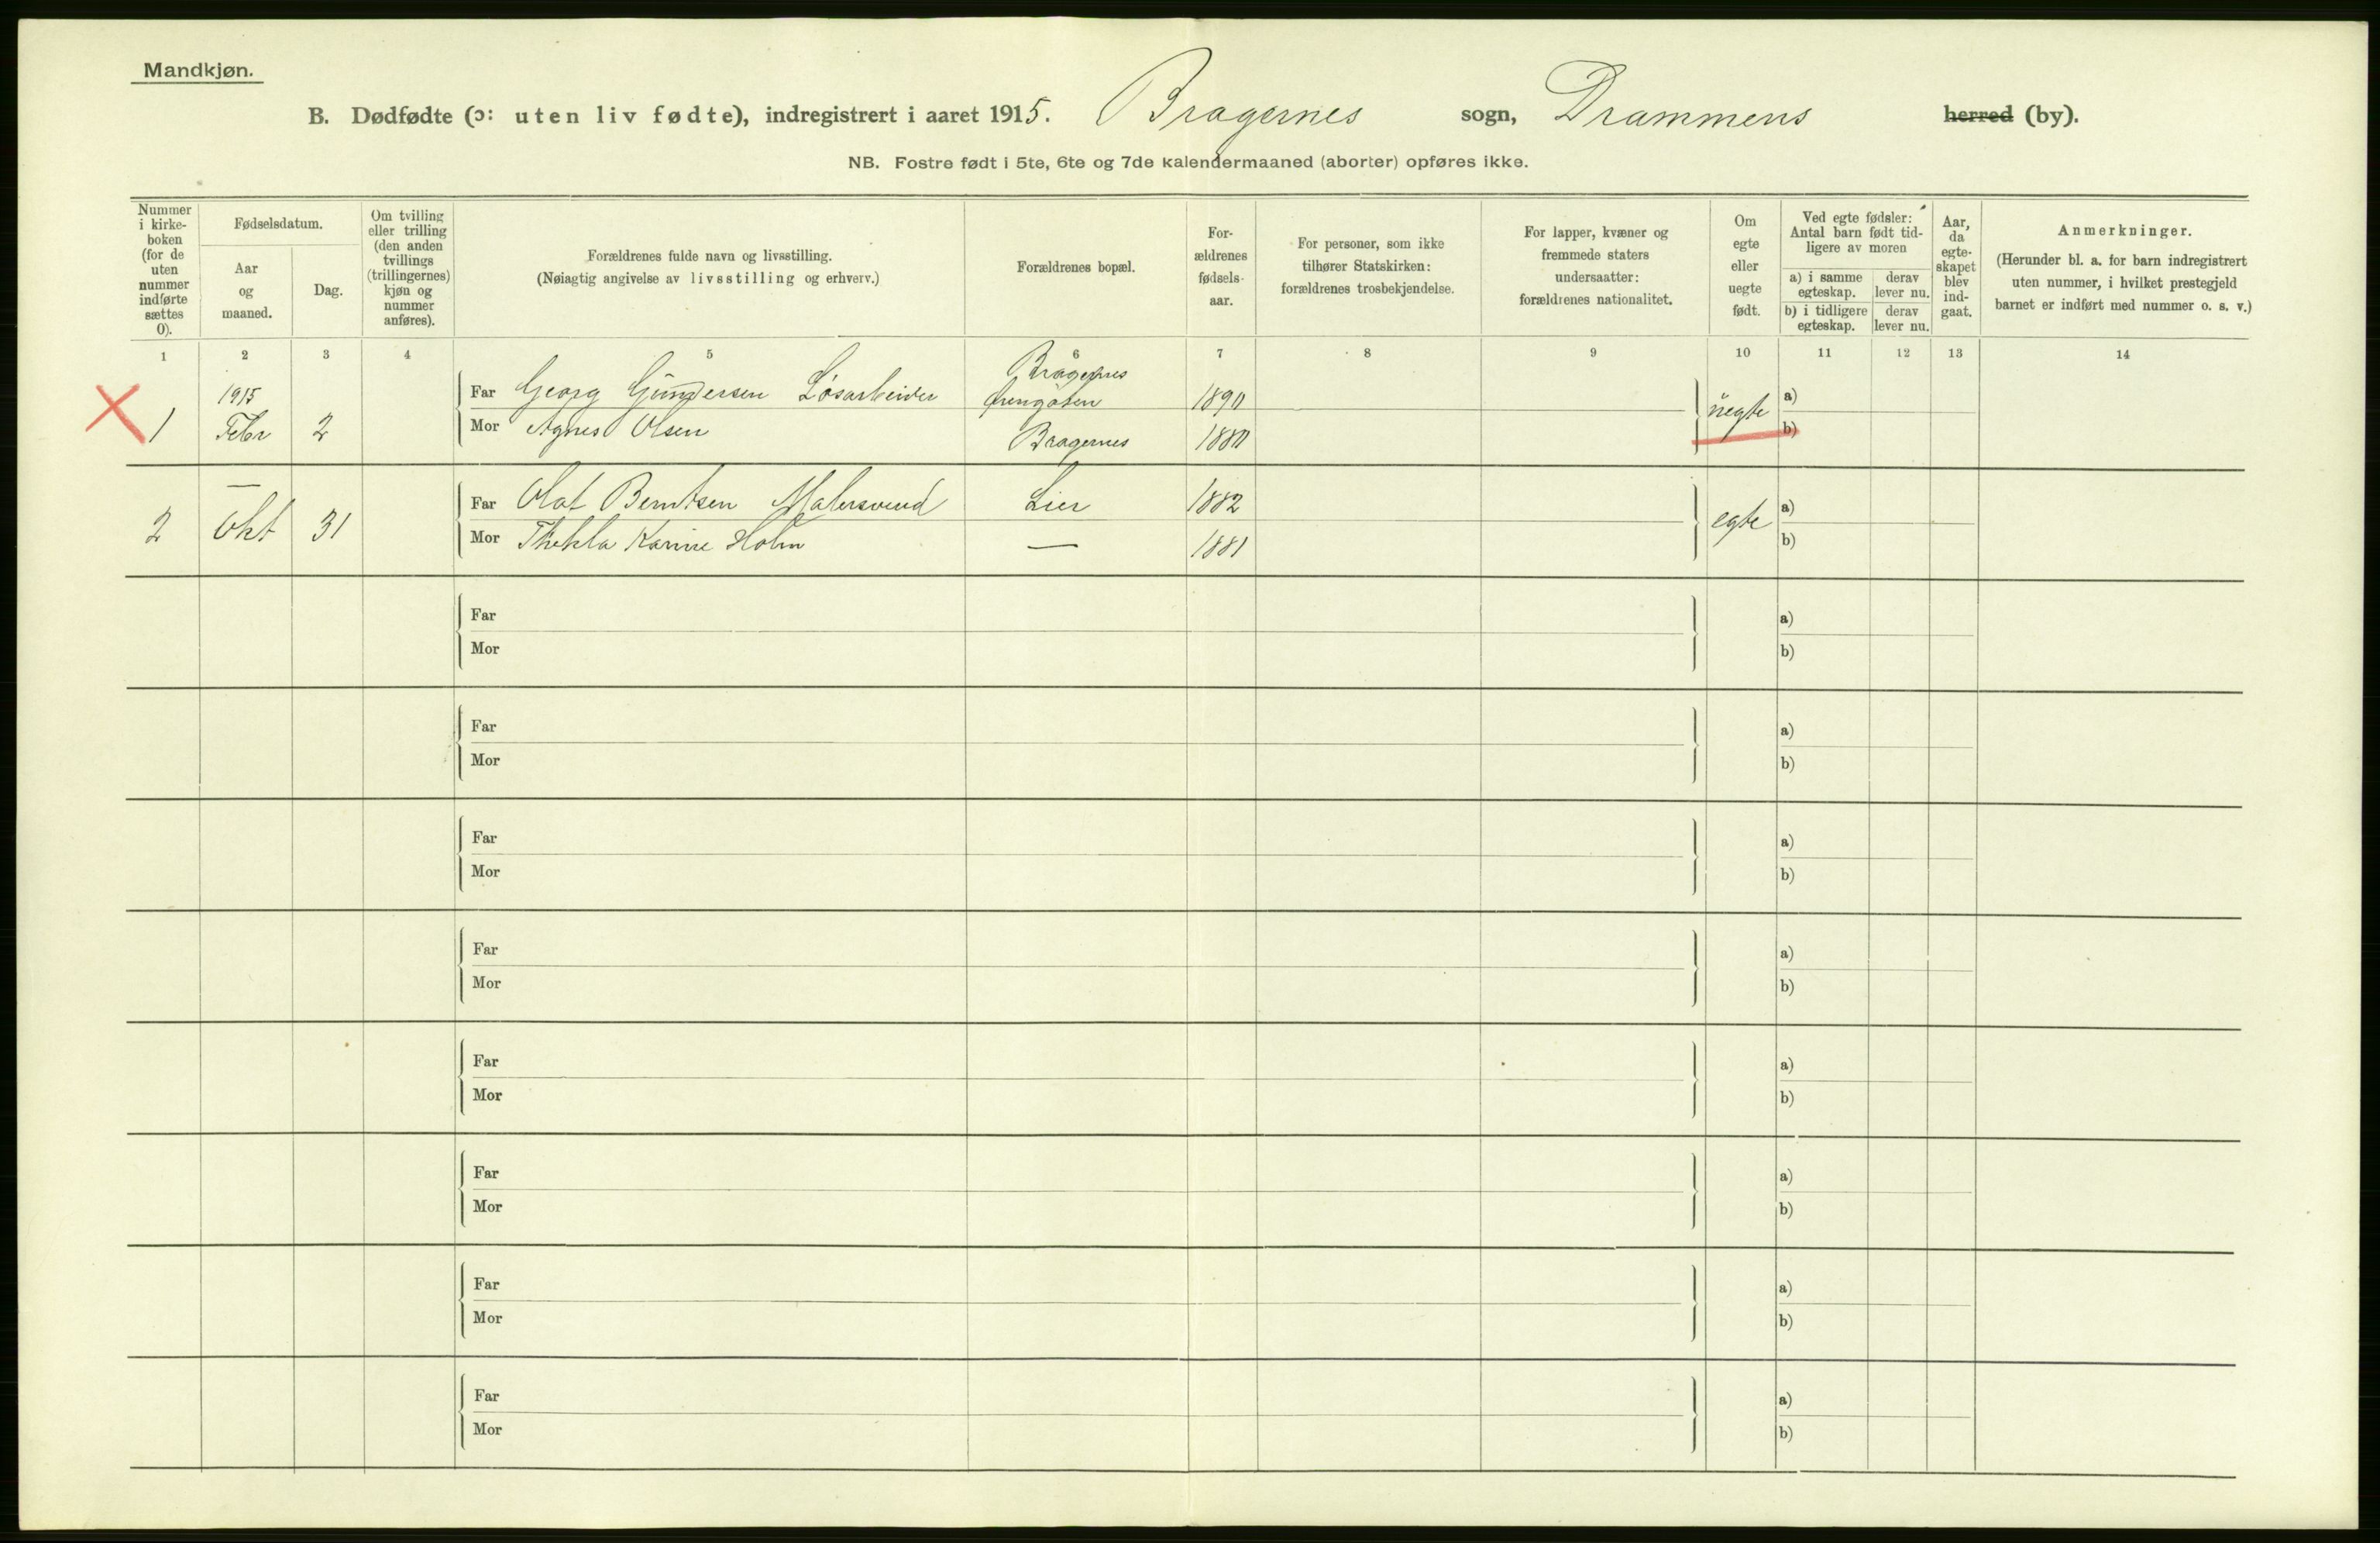 Mandkjøn.
B. Dødfødte (ɔ: uten liv fødte), indregistrert i aaret 1915. Bragernes sogn, Drammens herred (by).
NB. Fostre født i 5te, 6te og 7de kalendermaaned (aborter) opføres ikke.
Nummer i kirke-boken (for de uten nummer indførte sættes 0).
Fødselsdatum.
Aar og maaned.
Dag.
Om tvilling eller trilling (den anden tvillings (trillingernes) kjøn og nummer anføres).
Forældrenes fulde navn og livsstilling.
(Nøiagtig angivelse av livsstilling og erhverv.)
Forældrenes bopæl.
For-ældrenes fødsels-aar.
For personer, som ikke tilhører Statskirken: forældrenes trosbekjendelse.
For lapper, kvæner og fremmede staters undersaatter: forældrenes nationalitet.
Om egte eller uegte født.
Ved egte fødsler: Antal barn født tid-ligere av moren
a) i samme egteskap. derav lever nu.
b) i tidligere egteskap. derav lever nu.
Aar, da egte-skapet blev ind-gaat.
Anmerkninger.
(Herunder bl. a. for barn indregistrert uten nummer, i hvilket prestegjeld barnet er indført med nummer o. s. v.)
1 2 3 4 5 6 7 8 9 10 11 12 13 14
1 1915 Febr 2
Far Georg Gundersen Løsarbeider Bragernes 1890 uegte a)
Mor Agnes Olsen Bragernes 1880 b)
2 — Okt 31
Far Olaf Berntsen Malersvend Lier 1882 egte a)
Mor Thekla Karine Holm — 1881 b)
Far a)
Mor b)
Far a)
Mor b)
Far a)
Mor b)
Far a)
Mor b)
Far a)
Mor b)
Far a)
Mor b)
Far a)
Mor b)
Far a)
Mor b)